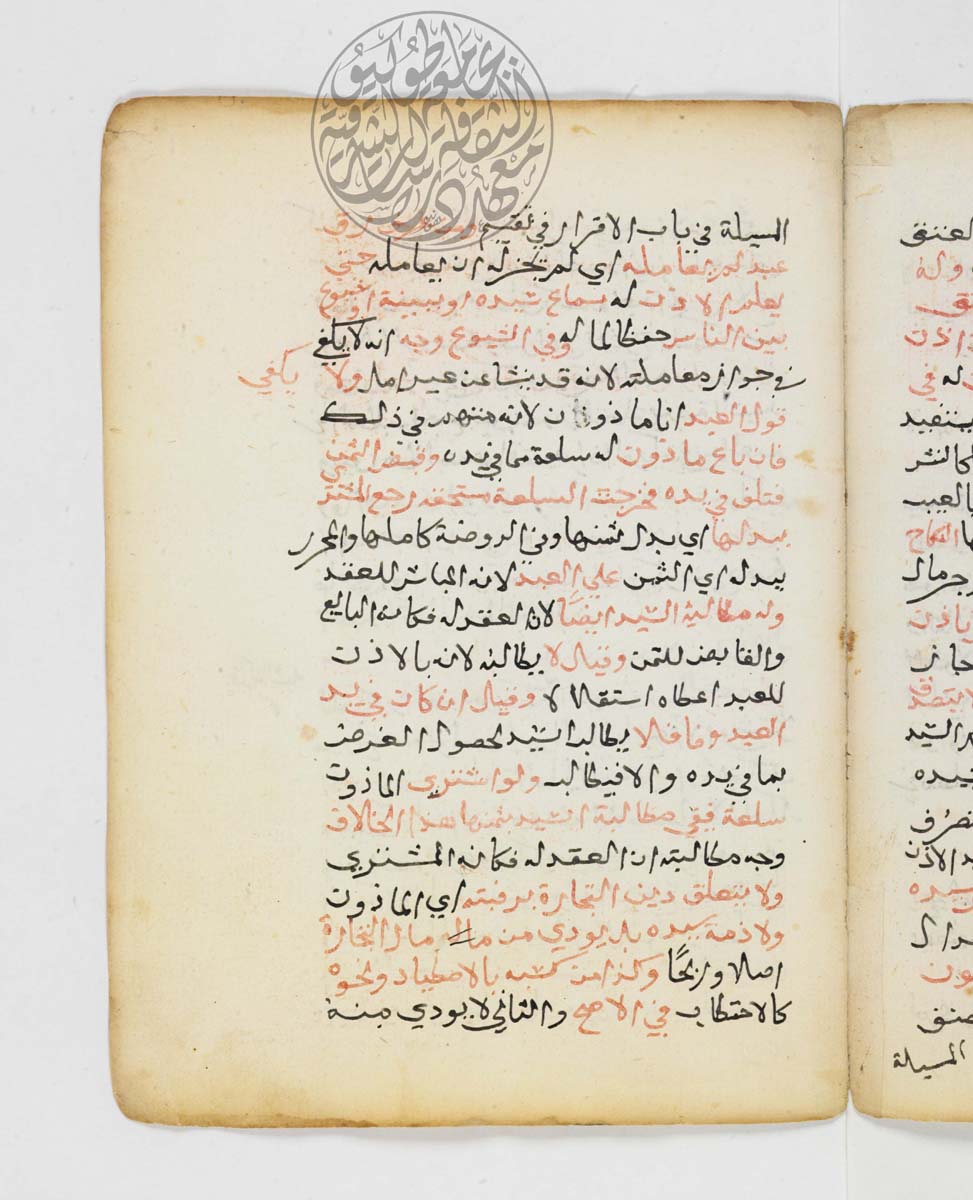 المسيلة في باب الاقرار في تقسيم ومن عرف رق
عبد لم يعامله اي لم يجز له ان يعامله حتى
يعلم الاذن له بسماع سيده او ببينة او شيوع
بين الناس حفظا لما له وفي الشيوع وجه انه لا يكفي
في جواز معاملته لانه قد ينشا عن غير اصل ولا يكفي
قول العبد انا ماذون لانه متهم في ذلك
فان باع ماذون له سلعة مما في يده وقبض الثمن
فتلف في يده فخرجت السلعة مستحقه رجع المشتري
ببدلها اي بدل ثمنها وفي الروضة كاصلها والمحرر
ببدله اي الثمن على العبد لانه المباشر للعقد
وله مطالبة السيد ايضا لان العقد له فكانه البايع
والقابض للثمن وقيل لا يطالبه لانه بالاذن
للعبد اعطاه استقلالا وقيل ان كان في يد
العبد وفا فلا يطالب السيد لحصول الغرض
بما في يده والا فيطالب ولو اشترى الماذون
سلعة ففي مطالبة السيد بثمنها هذا الخلاف
وجه مطالبته ان العقد له فكانه المشتري
ولا يتعلق دين التجارة برقبته اي الماذون
ولا ذمة سيده بل يودي من مال التجارة
اصلا وربحا وكذا من كسبه بالاصطياد ونحوه
كالاحتطاب في الاصح والثاني لا يودي منه
العتق
وله
اذن
له في
بالعيب
النكاح
جاز
السيد
يده
الاذن
سيده
المسيلة
جامعة طوكيو
معهد دراسات الثقافة الشرقية